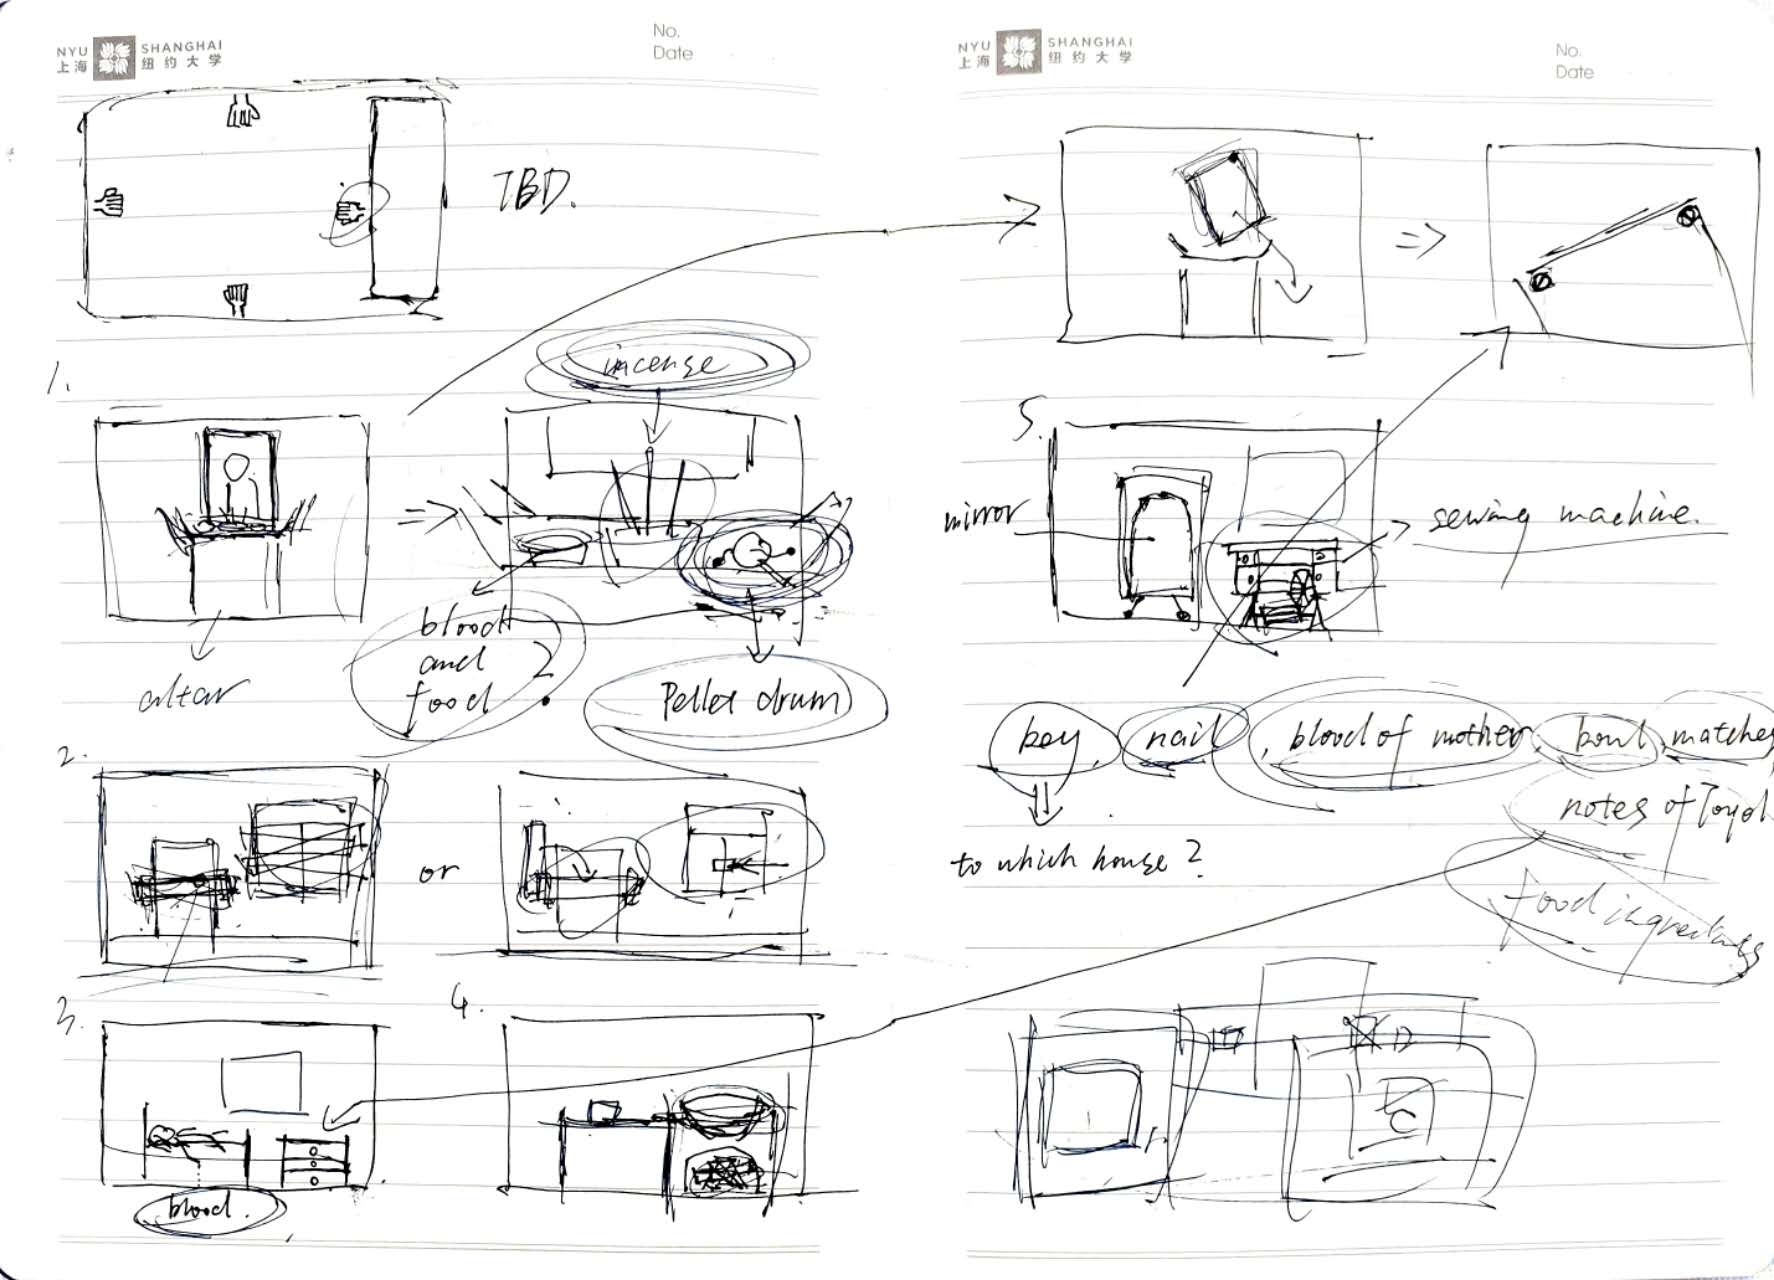 NYU SHANGHAI
上海 纽约大学
No.
Date
TBD.
1.
incense
altar
blood
and
food ?
Pellet drum
2.
or
3.
blood.
4.
NYU SHANGHAI
上海 纽约大学
No.
Date
5.
mirror
sewing machine.
key, nail, blood of mother, bowl, matches
notes of
to which house?